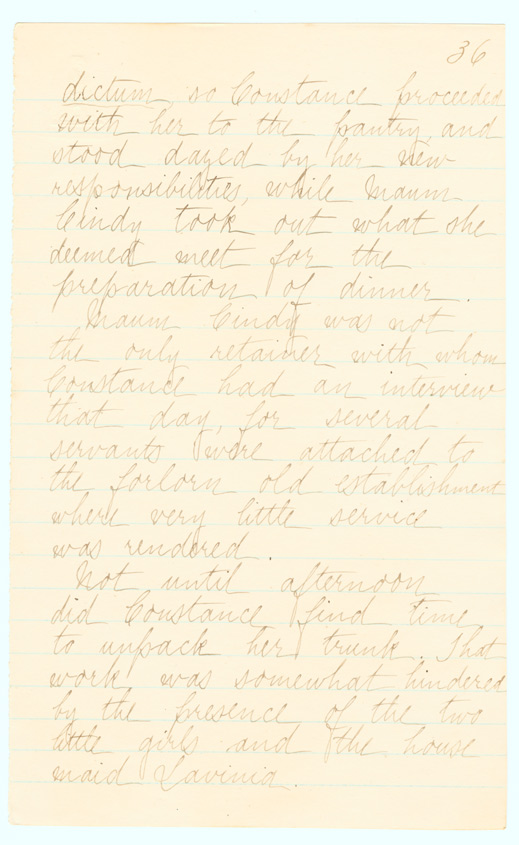 36
dictum, so Constance proceeded
with her to the pantry, and
stood dazed by her new
responsibilities, while Maum
Cindy took out what she
deemed meet for the
preparation of dinner.
Maum Cindy was not
the only retainer with whom
Constance had an interview
that day, for several
servants were attached to
the forlorn old establishment
where very little service
was rendered.
Not until afternoon
did Constance find time
to unpack her trunk. That
work was somewhat hindered
by the presence of the two
little girls and the house
maid Lavinia.